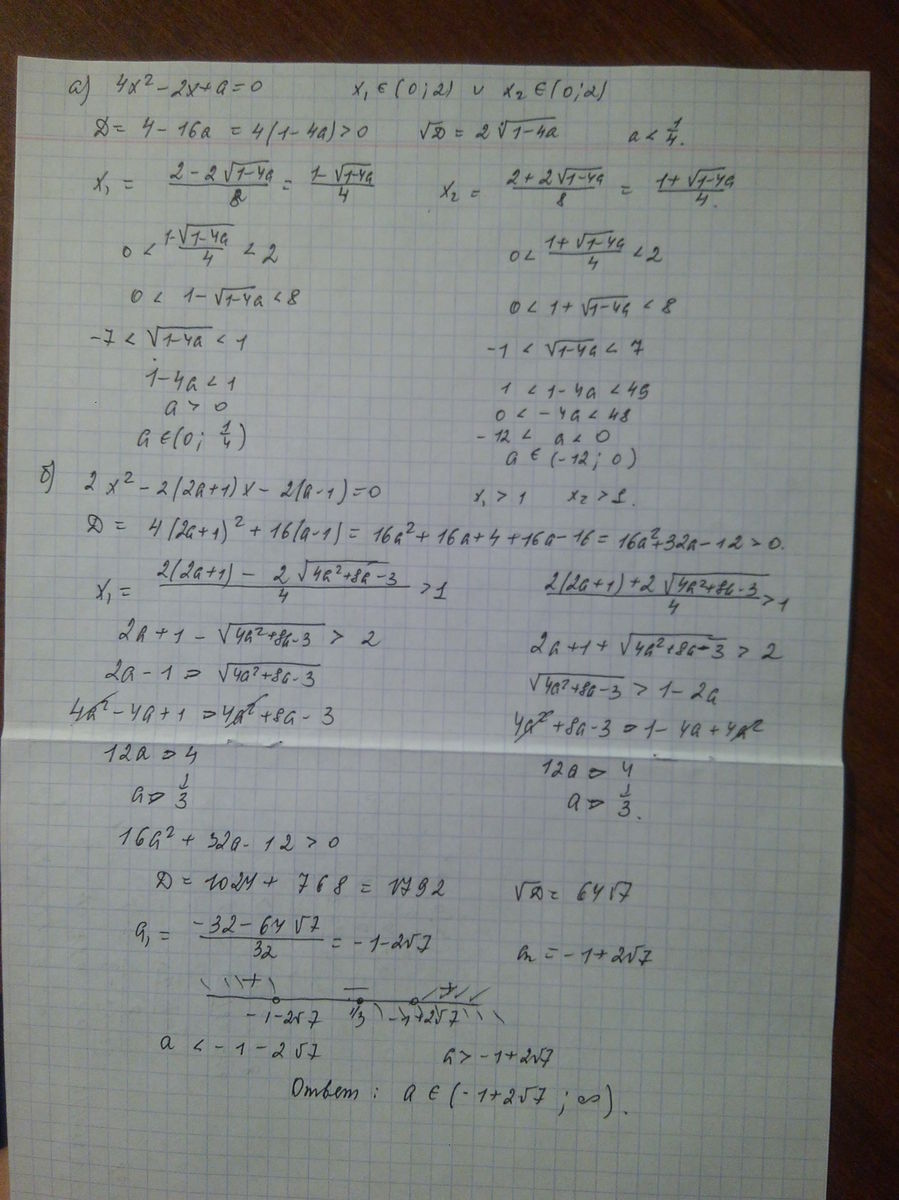 а) 4x² − 2x + a = 0 x₁ ∈ (0; 2) ∪ x₂ ∈ (0; 2)
D = 4 − 16a = 4(1 − 4a) > 0 √D = 2√(1−4a) a < 1/4.
x₁ = (2 − 2√(1−4a))/8 = (1 − √(1−4a))/4 x₂ = (2 + 2√(1−4a))/8 = (1 + √(1−4a))/4.
0 < (1 − √(1−4a))/4 < 2 0 < (1 + √(1−4a))/4 < 2
0 < 1 − √(1−4a) < 8 0 < 1 + √(1−4a) < 8
−7 < √(1−4a) < 1 −1 < √(1−4a) < 7
1 − 4a < 1 1 < 1 − 4a < 49
a > 0 0 < −4a < 48
a ∈ (0; 1/4) −12 < a < 0
a ∈ (−12; 0)
б) 2x² − 2(2a+1)x − 2(a−1) = 0 x₁ > 1 x₂ > 1.
D = 4(2a+1)² + 16(a−1) = 16a² + 16a + 4 + 16a − 16 = 16a² + 32a − 12 > 0.
x₁ = (2(2a+1) − 2√(4a²+8a−3))/4 > 1 (2(2a+1) + 2√(4a²+8a−3))/4 > 1
2a + 1 − √(4a²+8a−3) > 2 2a + 1 + √(4a²+8a−3) > 2
2a − 1 > √(4a²+8a−3) √(4a²+8a−3) > 1 − 2a
4a² − 4a + 1 > 4a² + 8a − 3 4a² + 8a − 3 > 1 − 4a + 4a²
12a > 4 12a > 4
a > 1/3 a > 1/3.
16a² + 32a − 12 > 0
D = 1024 + 768 = 1792 √D = 64√7
a₁ = (−32 − 64√7)/32 = −1−2√7 a₂ = −1+2√7
+ − +
−1−2√7 1/3 −1+2√7
a < −1 − 2√7 a > −1+2√7
Ответ: a ∈ (−1+2√7; ∞).